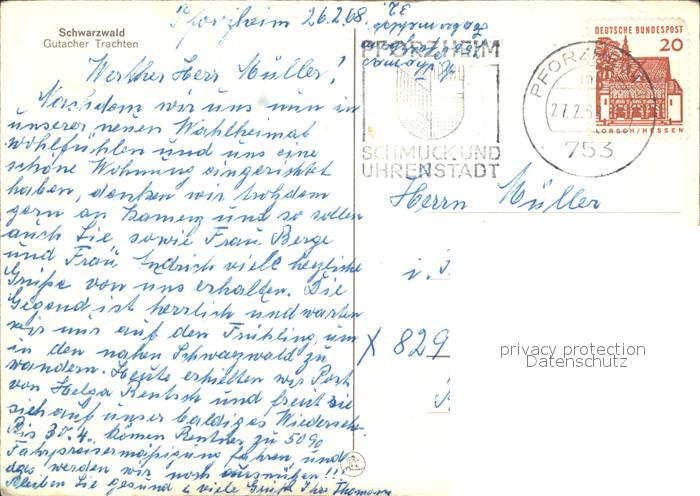 Schwarzwald
Gutacher Trachten
Pforzheim 26.2.68.
Werther Herr Müller!
Nachdem wir uns nun in
unserer neuen Wahlheimat
wohlfühlen und uns eine
schöne Wohnung eingerichtet
haben, denken wir trotzdem
gern an Kamenz und so sollen
auch Sie, sowie Frau Berge
und Frau Endrich viele herzliche
Grüße von uns erhalten. Die
Gegend ist herrlich und warten
wir nur auf den Frühling, um
in den nahen Schwarzwald zu
wandern. Heute erhielten wir Post
von Helga Rentsch und freut sie
sich auf unser baldiges Wiedersehn.
Bis 30.4. können Rentner zu 50%
Fahrpreisermäßigung fahren, und
das werden wir noch ausnützen!!!
Bleiben Sie gesund u. viele Grüße Ihre Thomas
32.
PFORZHEIM
SCHMUCK UND
UHRENSTADT
PFORZHEIM
27.2.6
753
DEUTSCHE BUNDESPOST
20
LORSCH/HESSEN
Herrn Müller
i.
X 829
privacy protection
Datenschutz